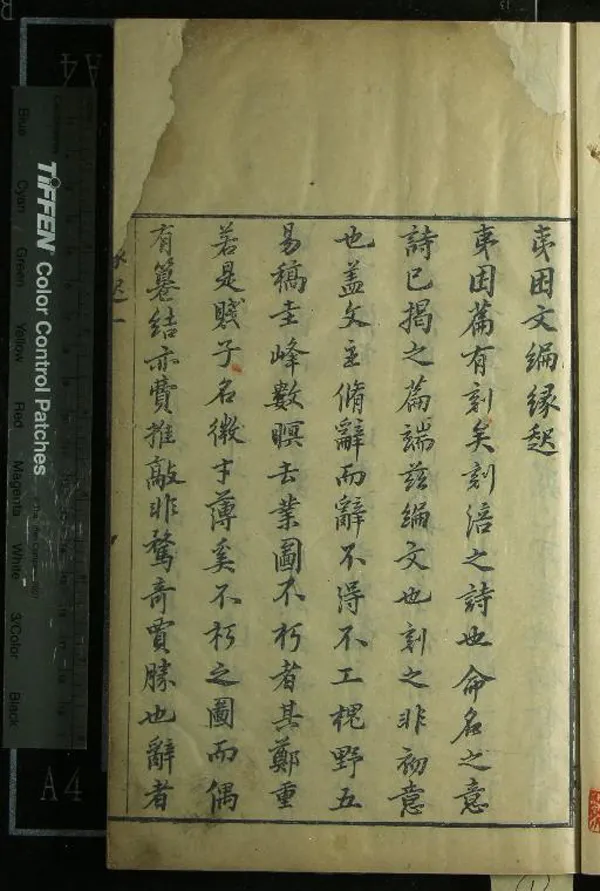 夷困文編緣起
夷困篇有刻矣刻涪之詩也命名之意
詩已揭之篇端茲編文也刻之非初意
也盖文主脩辭而辭不得不工槐野五
易稿圭峰數瞑去業圖不朽者其鄭重
若是賤子名微才薄奚不朽之圖而偶
有纂結亦費推敲非騖奇賈勝也辭者
TIFFEN Color Control Patches
Blue
Cyan
Green
Yellow
Red
Magenta
White
3/Color
Black
A4
A4